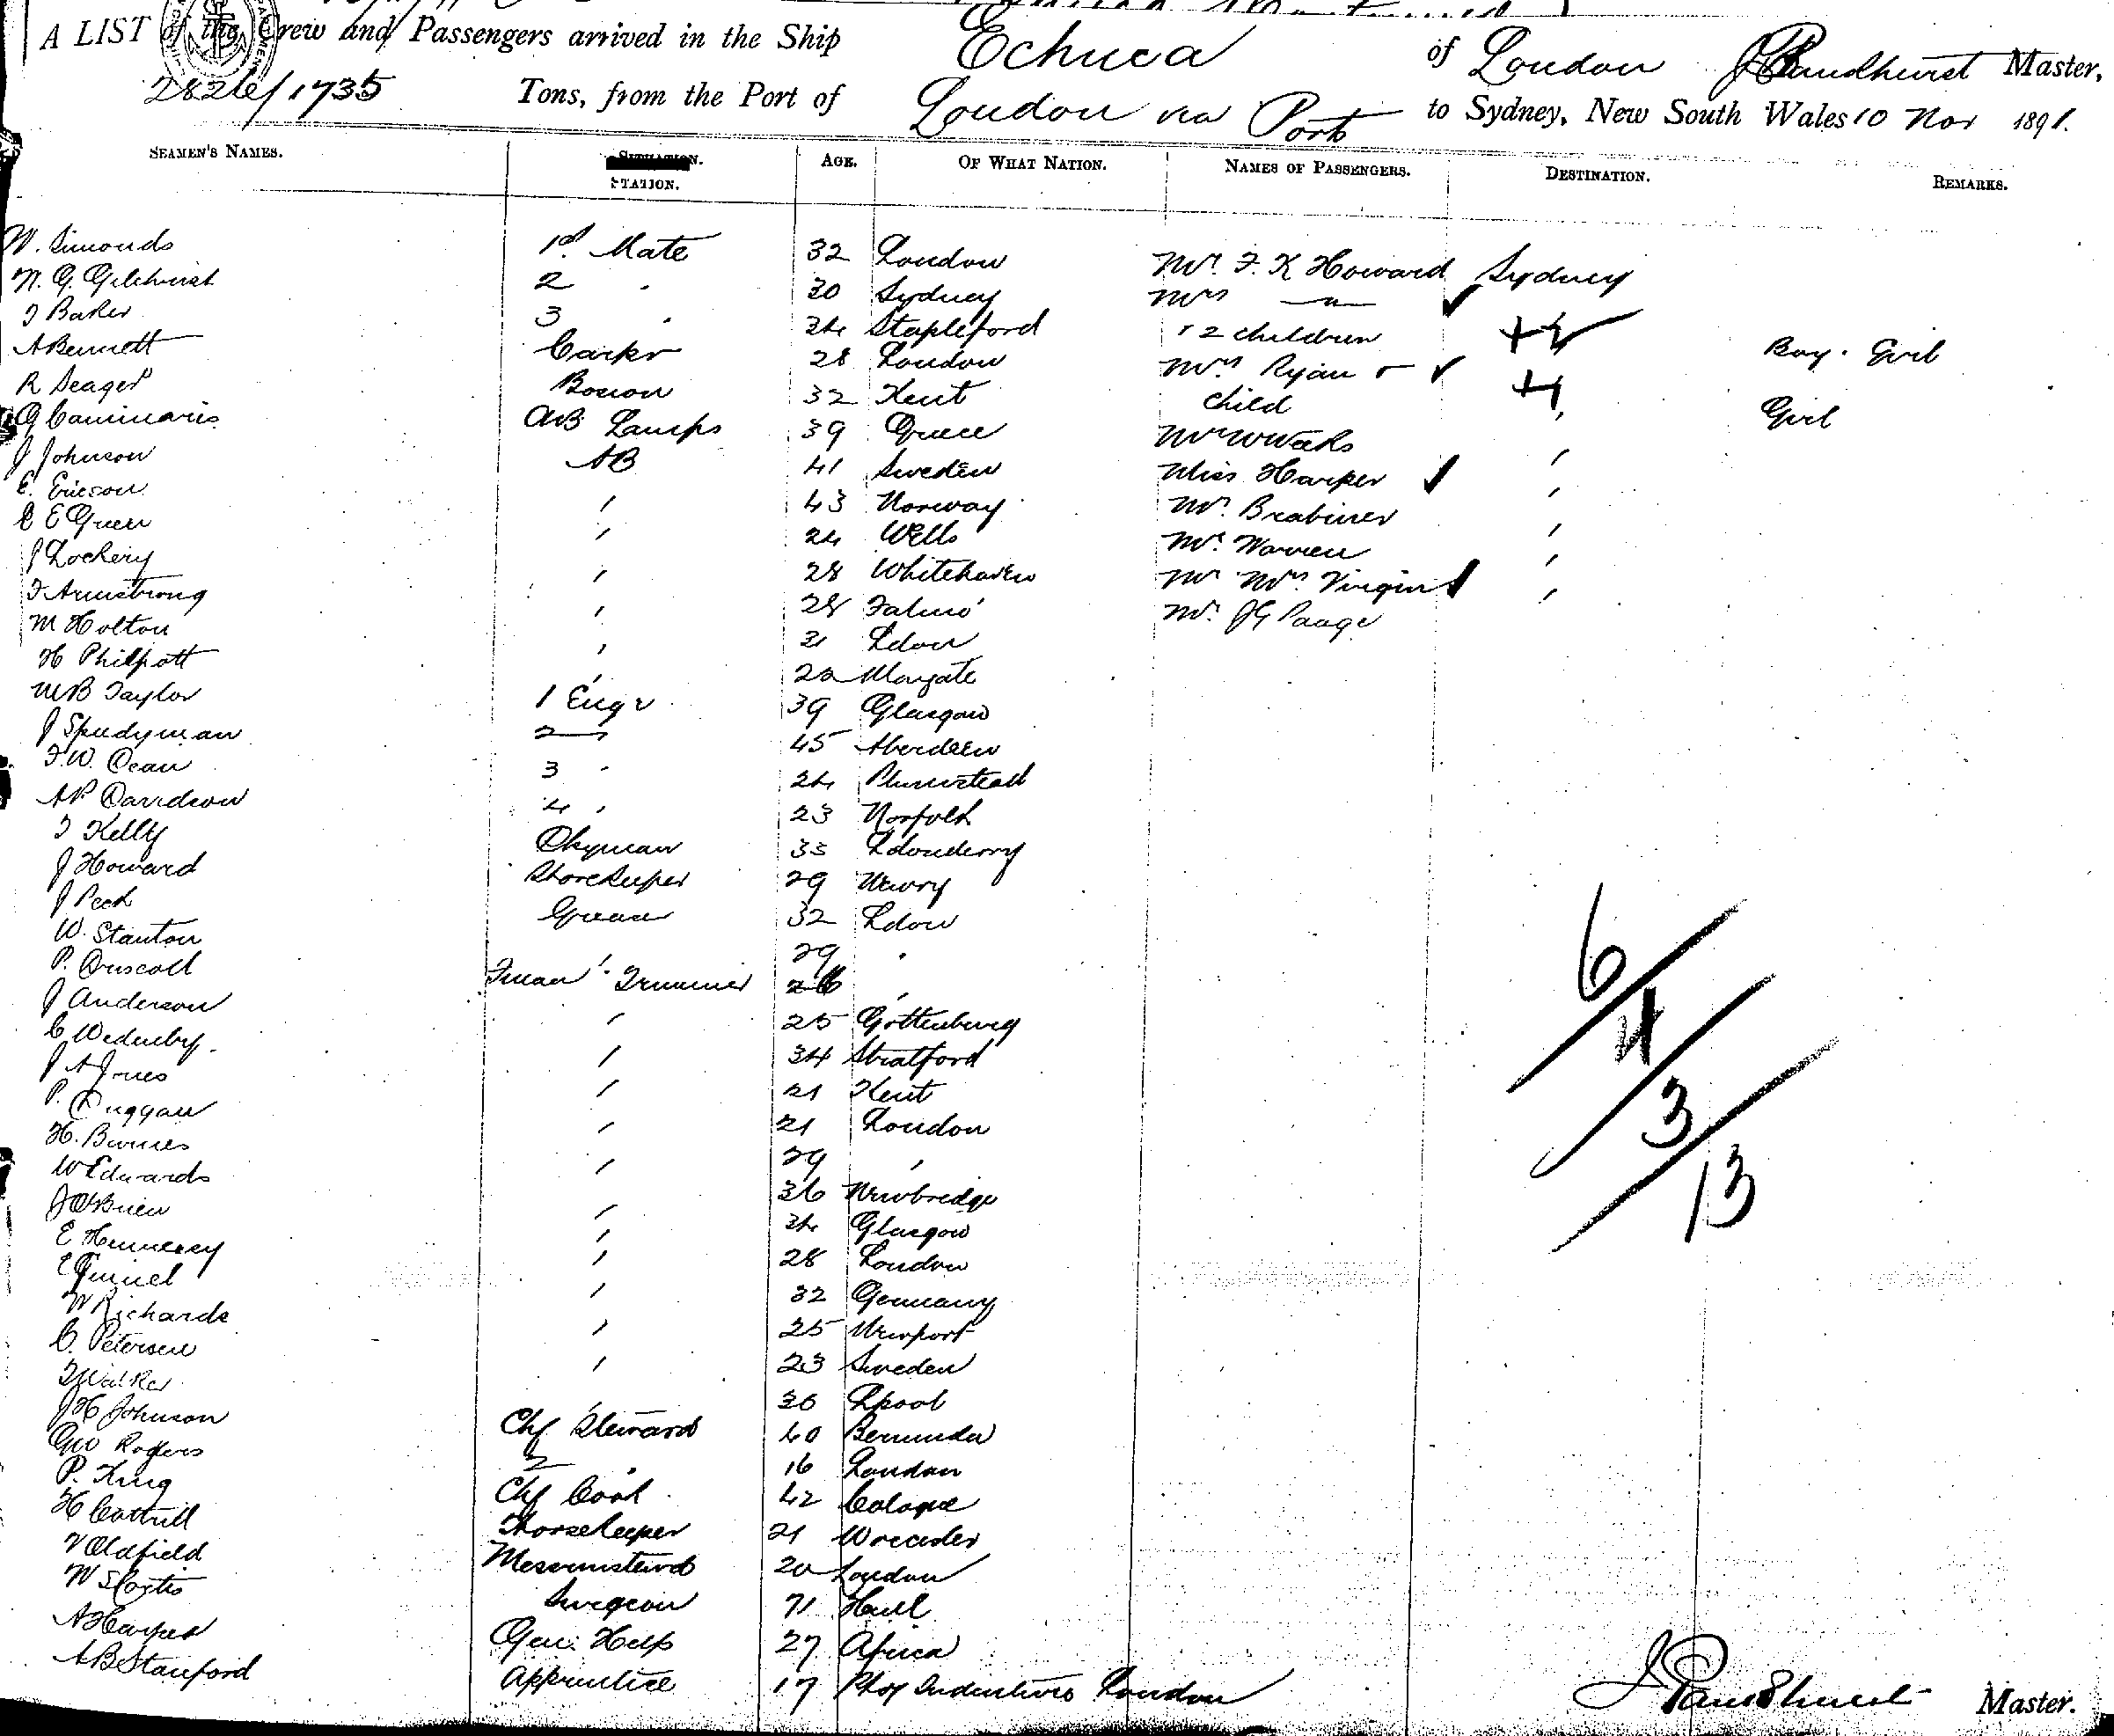 A LIST of the Crew and Passengers arrived in the Ship Echuca of London Master,
2826/1735 Tons, from the Port of London via Ports to Sydney, New South Wales 10 Nov 1891.
SEAMEN'S NAMES. STATION. AGE. OF WHAT NATION. NAMES OF PASSENGERS. DESTINATION. REMARKS.
W. Simonds 1st Mate 32 London Mr. F. K Howard Sydney
N. G. Gilchrist 2 " 30 Sydney Mrs "
J Baker 3 " 24 Stapleford 2 children Boy. Girl
A Bennett Carpr 28 London Mrs Ryan
R Seager Bosun 32 Kent child Girl
G AB Lamps 39 Greece
J Johnson AB 41 Sweden Miss Harper
E. Ericson " 43 Norway Mr.
C E Green " 24 Wells Mr. Warren
J Lockery " 28 Whitehaven Mr Mrs Virgin
F Armstrong " 28 Falmo Mr. JG
M Holton " 31 Ldon
H Philpott " 22 Margate
WB Taylor 1 Engr 39 Glasgow
J Speedyman 2 " 45 Aberdeen
F.W. Dean 3 " 24 Plumstead
AP. Davidson 4 " 23 Norfolk
J Kelly Dkyman 33 Ldonderry
J Howard Storekeeper 29 Newry
J Peck Greaser 32 Ldon
W. Stanton 29 "
P. Driscoll Fman & Trimmer 26 "
J Anderson " 25 Gottenburg
C " 34 Stratford
J A Jones " 21 Kent
P. Duggan " 21 London
H. Barnes " 29 "
W Edwards 36 Newbridge
J O'Brien " 24 Glasgow
E Hennessy " 28 London
E " 32 Germany
W Richards " 25 Newport
C. Petersen " 23 Sweden
J Walker " 36 Lpool
JH Johnson Chf Steward 40 Bermuda
Geo Rogers 2 " 16 London
P. King Chf Cook 42 Cologne
H Cottrill Storekeeper 21 Worcester
V Oldfield Messrmsteward 20 London
W Surgeon 71 Hull
A Harper Gen. Help 27 Africa
AB Stanford Apprentice 17 London
6/4/3/13
J Master.